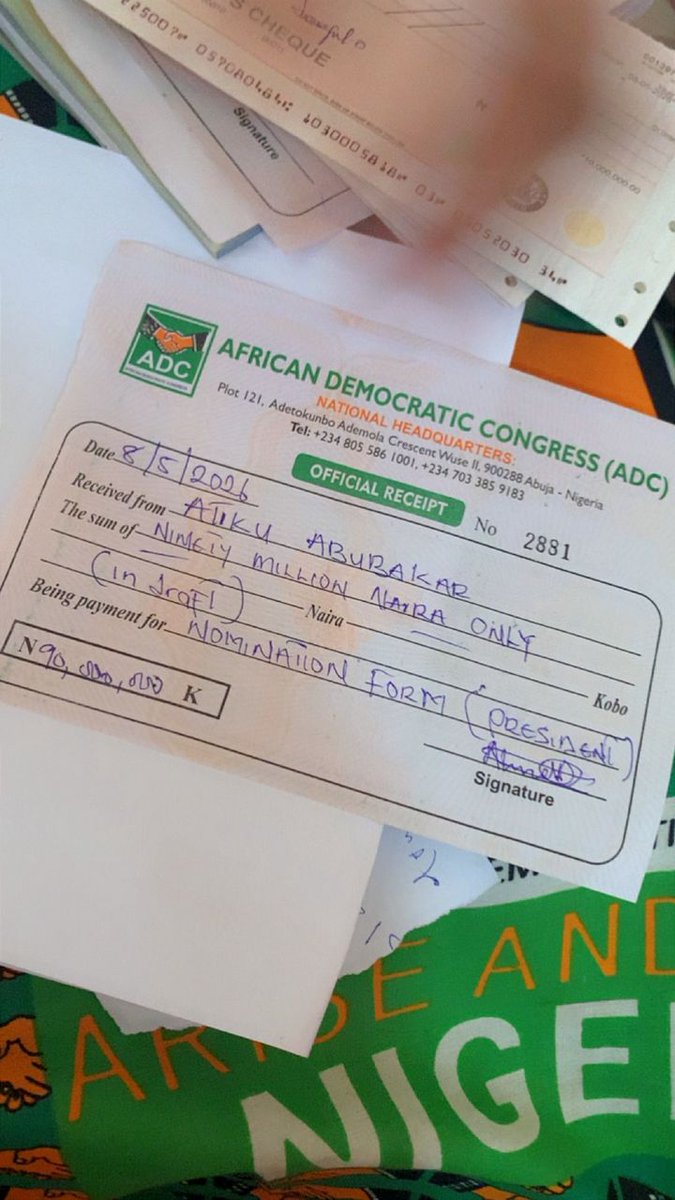 S CHEQUE
Signature
10,000,000.00
ADC
AFRICAN DEMOCRATIC CONGRESS
AFRICAN DEMOCRATIC CONGRESS (ADC)
NATIONAL HEADQUARTERS:
Plot 121, Adetokunbo Ademola Crescent Wuse II, 900288 Abuja - Nigeria
Tel: +234 805 586 1001, +234 703 385 9183
OFFICIAL RECEIPT
No 2881
Date 8/5/2026
Received from ATIKU ABUBAKAR
The sum of NINETY MILLION NAIRA ONLY
(in draft) Naira Kobo
Being payment for NOMINATION FORM (PRESIDENT)
N 90,000,000 K
Signature
ARISE AND
NIGE